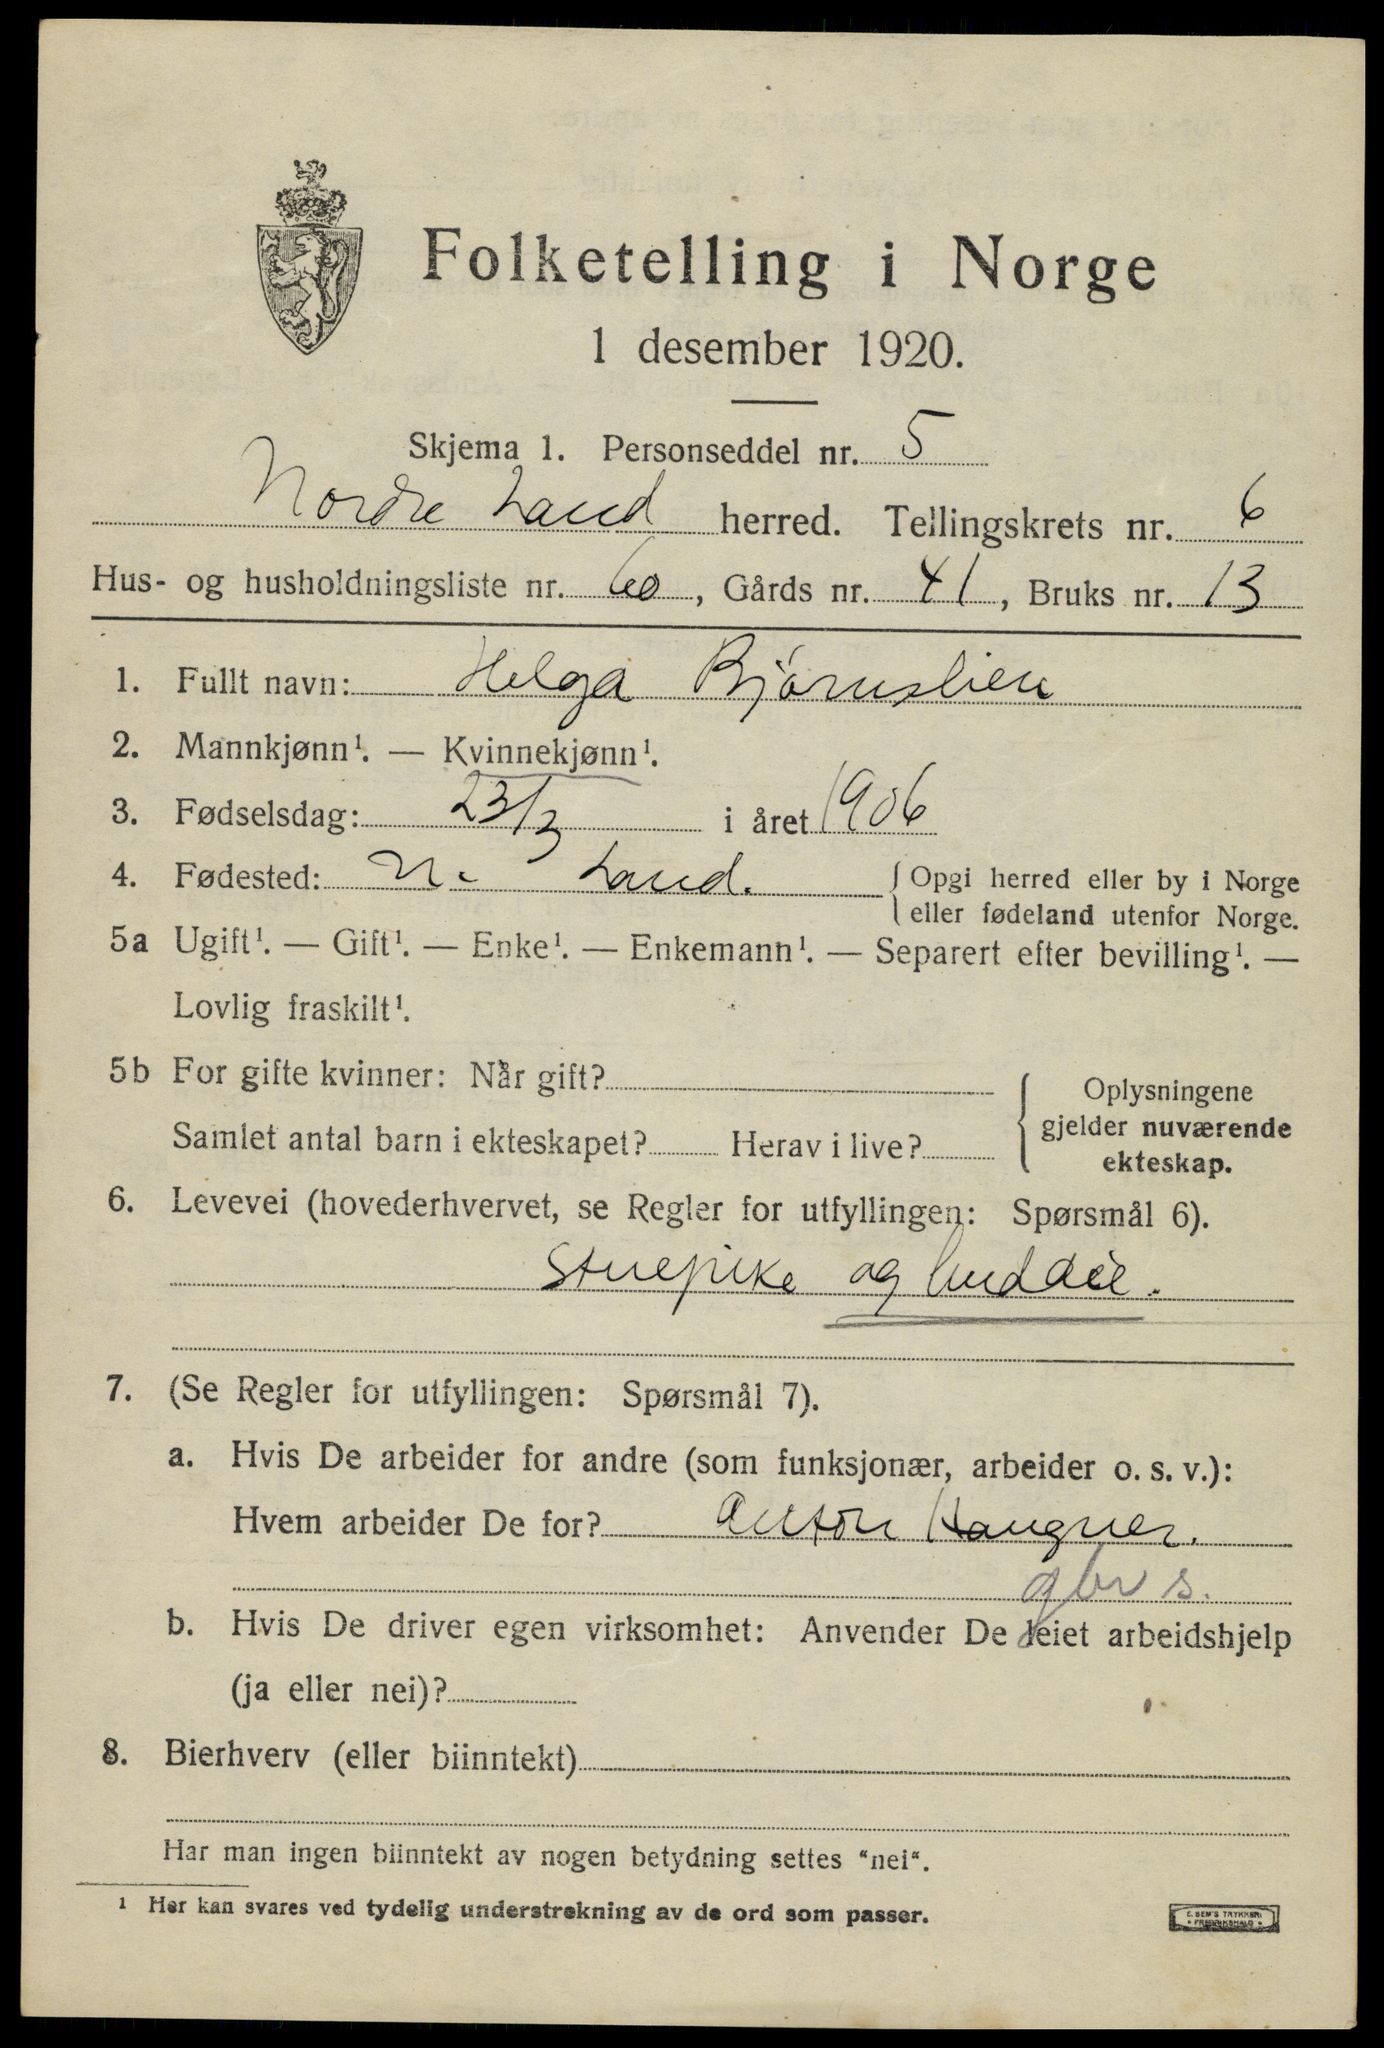 Folketelling i Norge
1 desember 1920.
Skjema 1. Personseddel nr. 5
Nordre Land herred. Tellingskrets nr. 6
Hus- og husholdningsliste nr. 60, Gårds nr. 41, Bruks nr. 13
1. Fullt navn: Helga Bjørnslien
2. Mannkjønn¹. — Kvinnekjønn¹.
3. Fødselsdag: 23/3 i året 1906
4. Fødested: N. Land. { Opgi herred eller by i Norge
eller fødeland utenfor Norge.
5a Ugift¹. — Gift¹. — Enke¹. — Enkemann¹. — Separert efter bevilling¹. —
Lovlig fraskilt¹.
5b For gifte kvinner: Når gift?
Samlet antal barn i ekteskapet? Herav i live?
{ Oplysningene
gjelder nuværende
ekteskap.
6. Levevei (hovederhvervet, se Regler for utfyllingen: Spørsmål 6).
Stuepike og buddeie.
7. (Se Regler for utfyllingen: Spørsmål 7).
a. Hvis De arbeider for andre (som funksjonær, arbeider o. s. v.):
Hvem arbeider De for? Anton Haugner.
gbr s.
b. Hvis De driver egen virksomhet: Anvender De leiet arbeidshjelp
(ja eller nei)?
8. Bierhverv (eller biinntekt)
Har man ingen biinntekt av nogen betydning settes "nei".
¹ Her kan svares ved tydelig understrekning av de ord som passer.
E. SEM'S TRYKKERI
• FREDRIKSHALD •